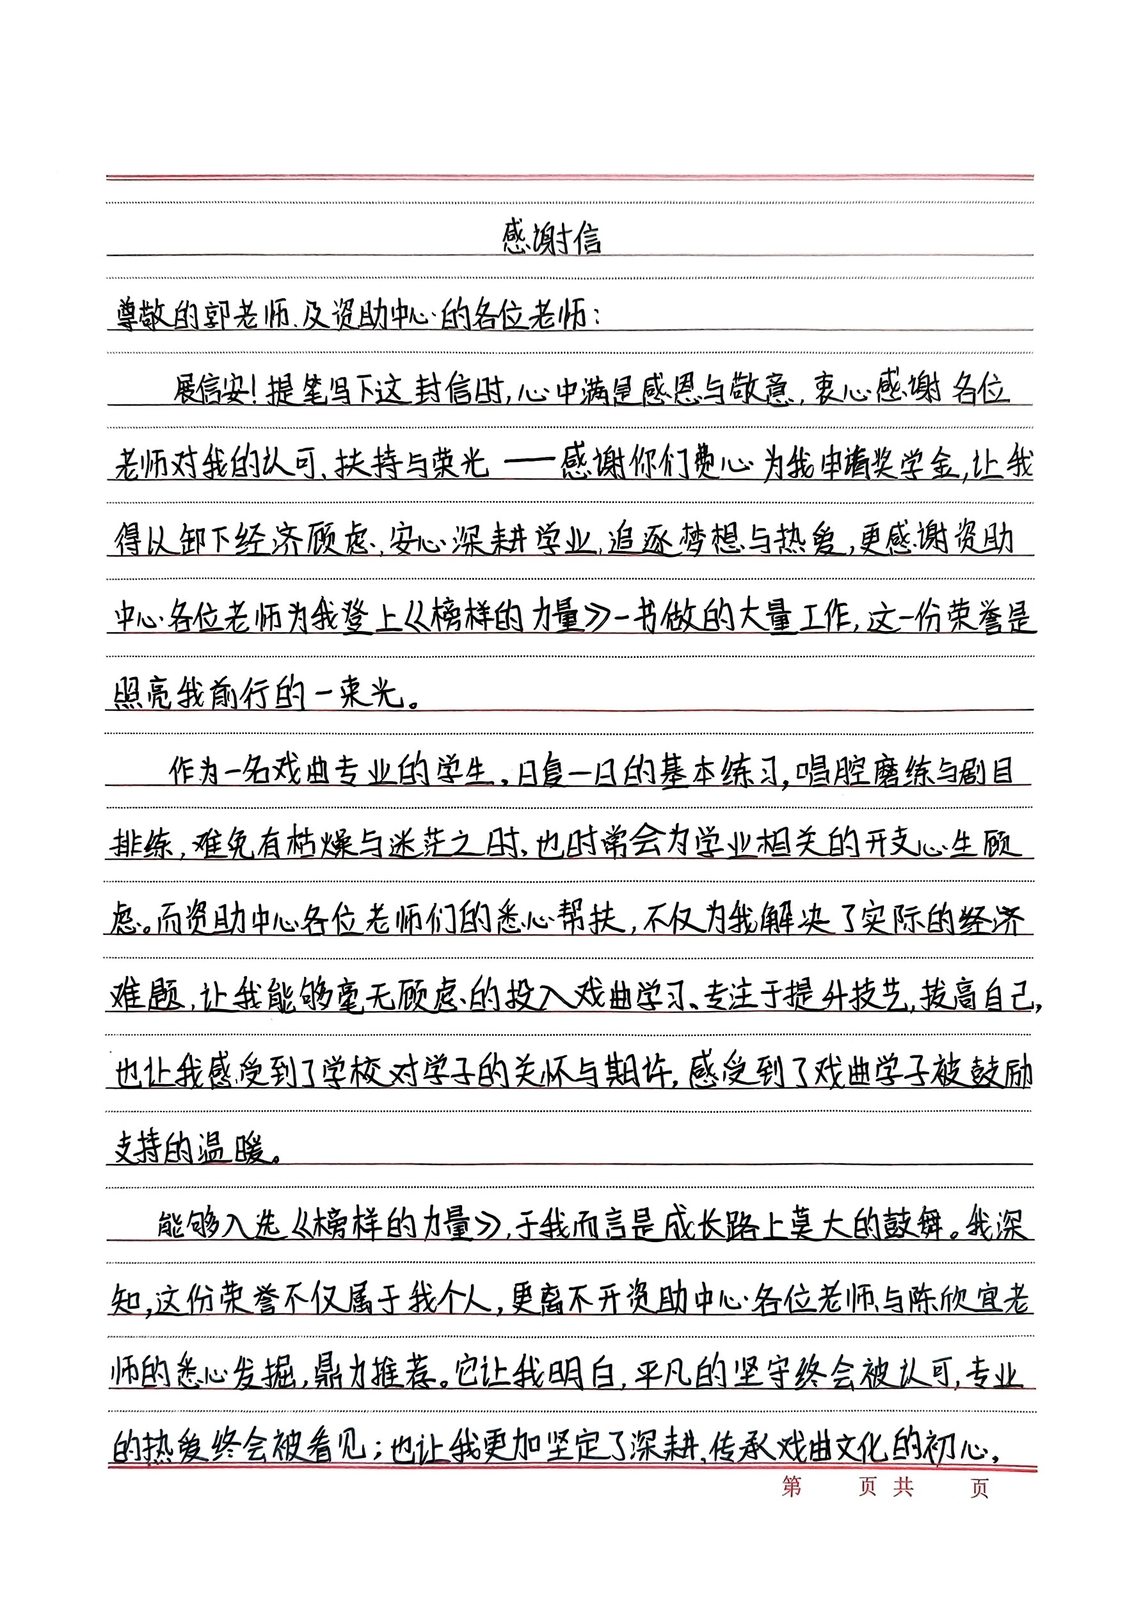 感谢信
尊敬的郭老师、及资助中心的各位老师：
展信安！提笔写下这封信时，心中满是感恩与敬意，衷心感谢各位
老师对我的认可、扶持与荣光——感谢你们费心为我申请奖学金，让我
得以卸下经济顾虑，安心深耕学业，追逐梦想与热爱，更感谢资助
中心各位老师为我登上《榜样的力量》一书做的大量工作，这一份荣誉是
照亮我前行的一束光。
作为一名戏曲专业的学生，日复一日的基本练习，唱腔磨练与剧目
排练，难免有枯燥与迷茫之时，也时常会为学业相关的开支心生顾
虑。而资助中心各位老师们的悉心帮扶，不仅为我解决了实际的经济
难题，让我能够毫无顾虑的投入戏曲学习、专注于提升技艺，拔高自己，
也让我感受到了学校对学子的关怀与期许，感受到了戏曲学子被鼓励
支持的温暖。
能够入选《榜样的力量》，于我而言是成长路上莫大的鼓舞。我深
知，这份荣誉不仅属于我个人，更离不开资助中心各位老师与陈欣宜老
师的悉心发掘，鼎力推荐。它让我明白，平凡的坚守终会被认可，专业
的热爱终会被看见；也让我更加坚定了深耕、传承戏曲文化的初心，
第 页 共 页